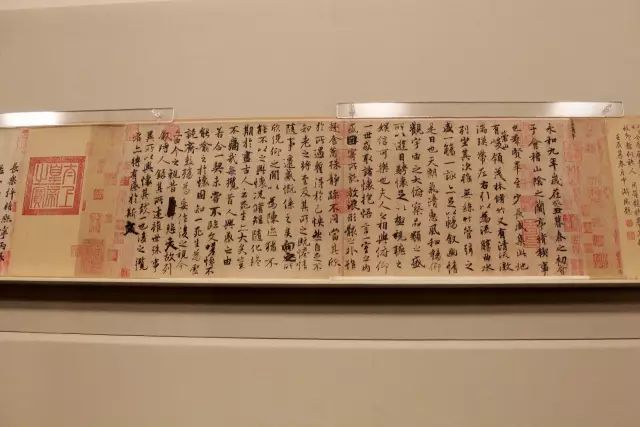 永和九年歲在癸丑暮春之初會
于會稽山陰之蘭亭脩稧事
也群賢畢至少長咸集此地
有崇山峻領茂林脩竹又有清流激
湍暎帶左右引以為流觴曲水
列坐其次雖無絲竹管弦之
盛一觴一詠亦足以暢敘幽情
是日也天朗氣清惠風和暢仰
觀宇宙之大俯察品類之盛
所以遊目騁懷足以極視聽之
娛信可樂也夫人之相與俯仰
一世或取諸懷抱悟言一室之內
或因寄所託放浪形骸之外雖
趣舍萬殊靜躁不同當其欣
於所遇蹔得於己怏然自足不
知老之將至及其所之既惓情
隨事遷感慨係之矣向之所
欣俛仰之閒以為陳迹猶不
能不以之興懷況脩短隨化終
期於盡古人云死生亦大矣豈
不痛哉每攬昔人興感之由
若合一契未嘗不臨文嗟悼不
能喻之於懷固知一死生為虛
誕齊彭殤為妄作後之視今
亦由今之視昔悲夫故列
敘時人錄其所述雖世殊事
異所以興懷其致一也後之攬
者亦將有感於斯文
太上皇帝之寶
長樂許將熙寧丙辰